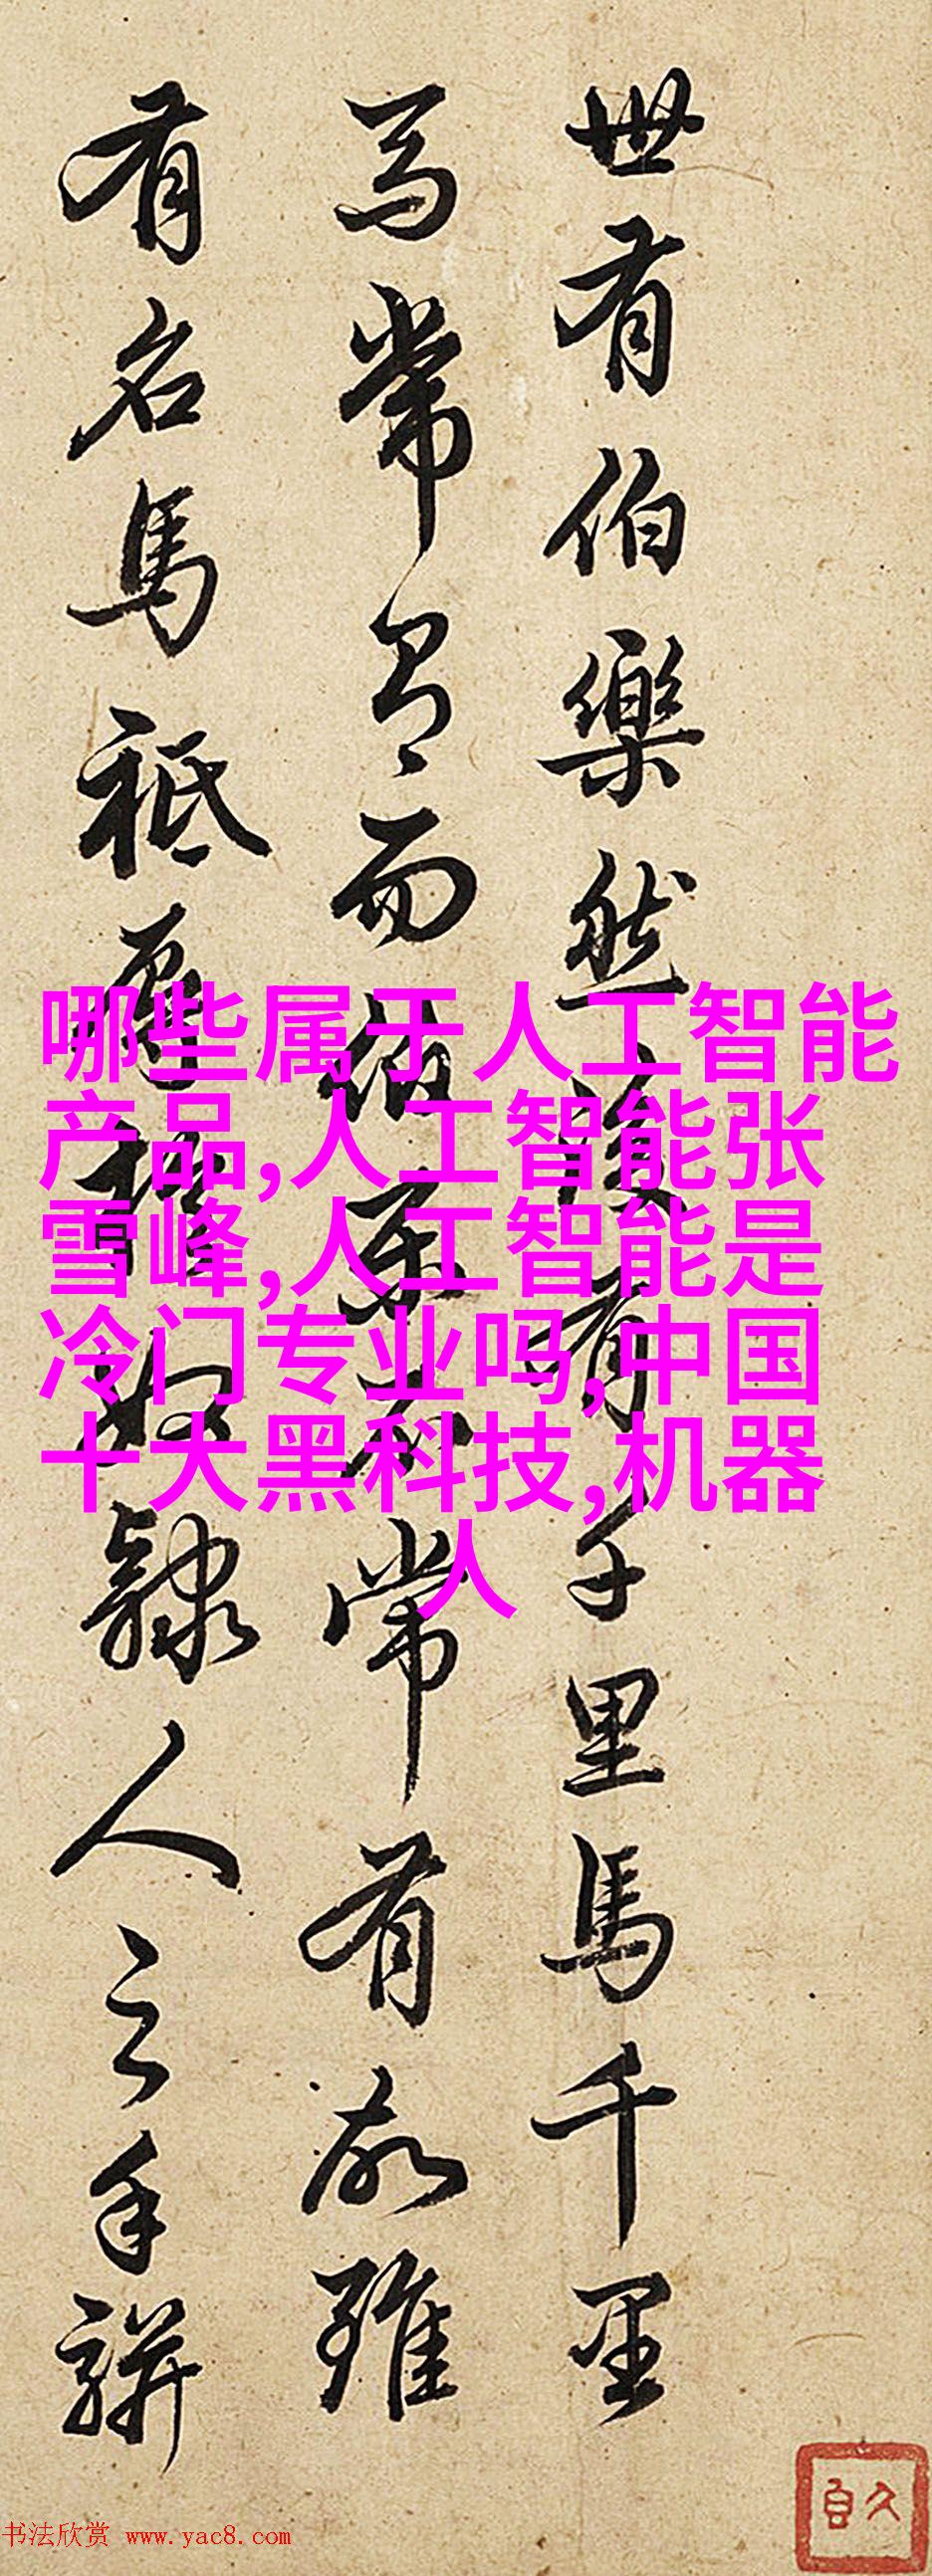 世有伯樂然後有千里馬千里
馬常有而伯樂不常有故雖
有名馬祗辱於奴隸人之手駢
哪些属于人工智能
产品,人工智能张
雪峰,人工智能是
冷门专业吗,中国
十大黑科技,机器
人
书法欣赏 www.yac8.com